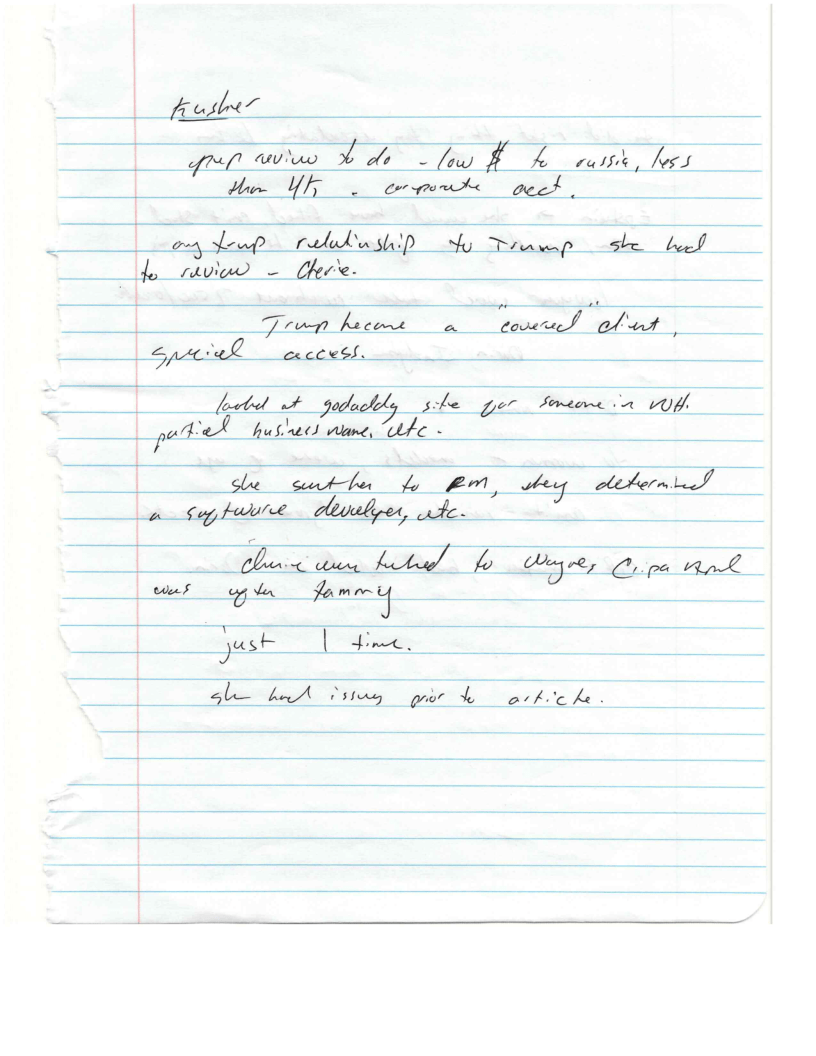 Kushner
prep review to do - low $ to russia, less
than 4K - corporate acct.
any trump relationship to Trump she had
to review - Cherie.
Trump became a "covered" client,
special access.
looked at godaddy site for someone in WH.
partial business name, etc.
she sent her to RM, they determined
a software developer, etc.
Cherie talked to Wayne,
was after tammy
just 1 time.
she had issues prior to article.